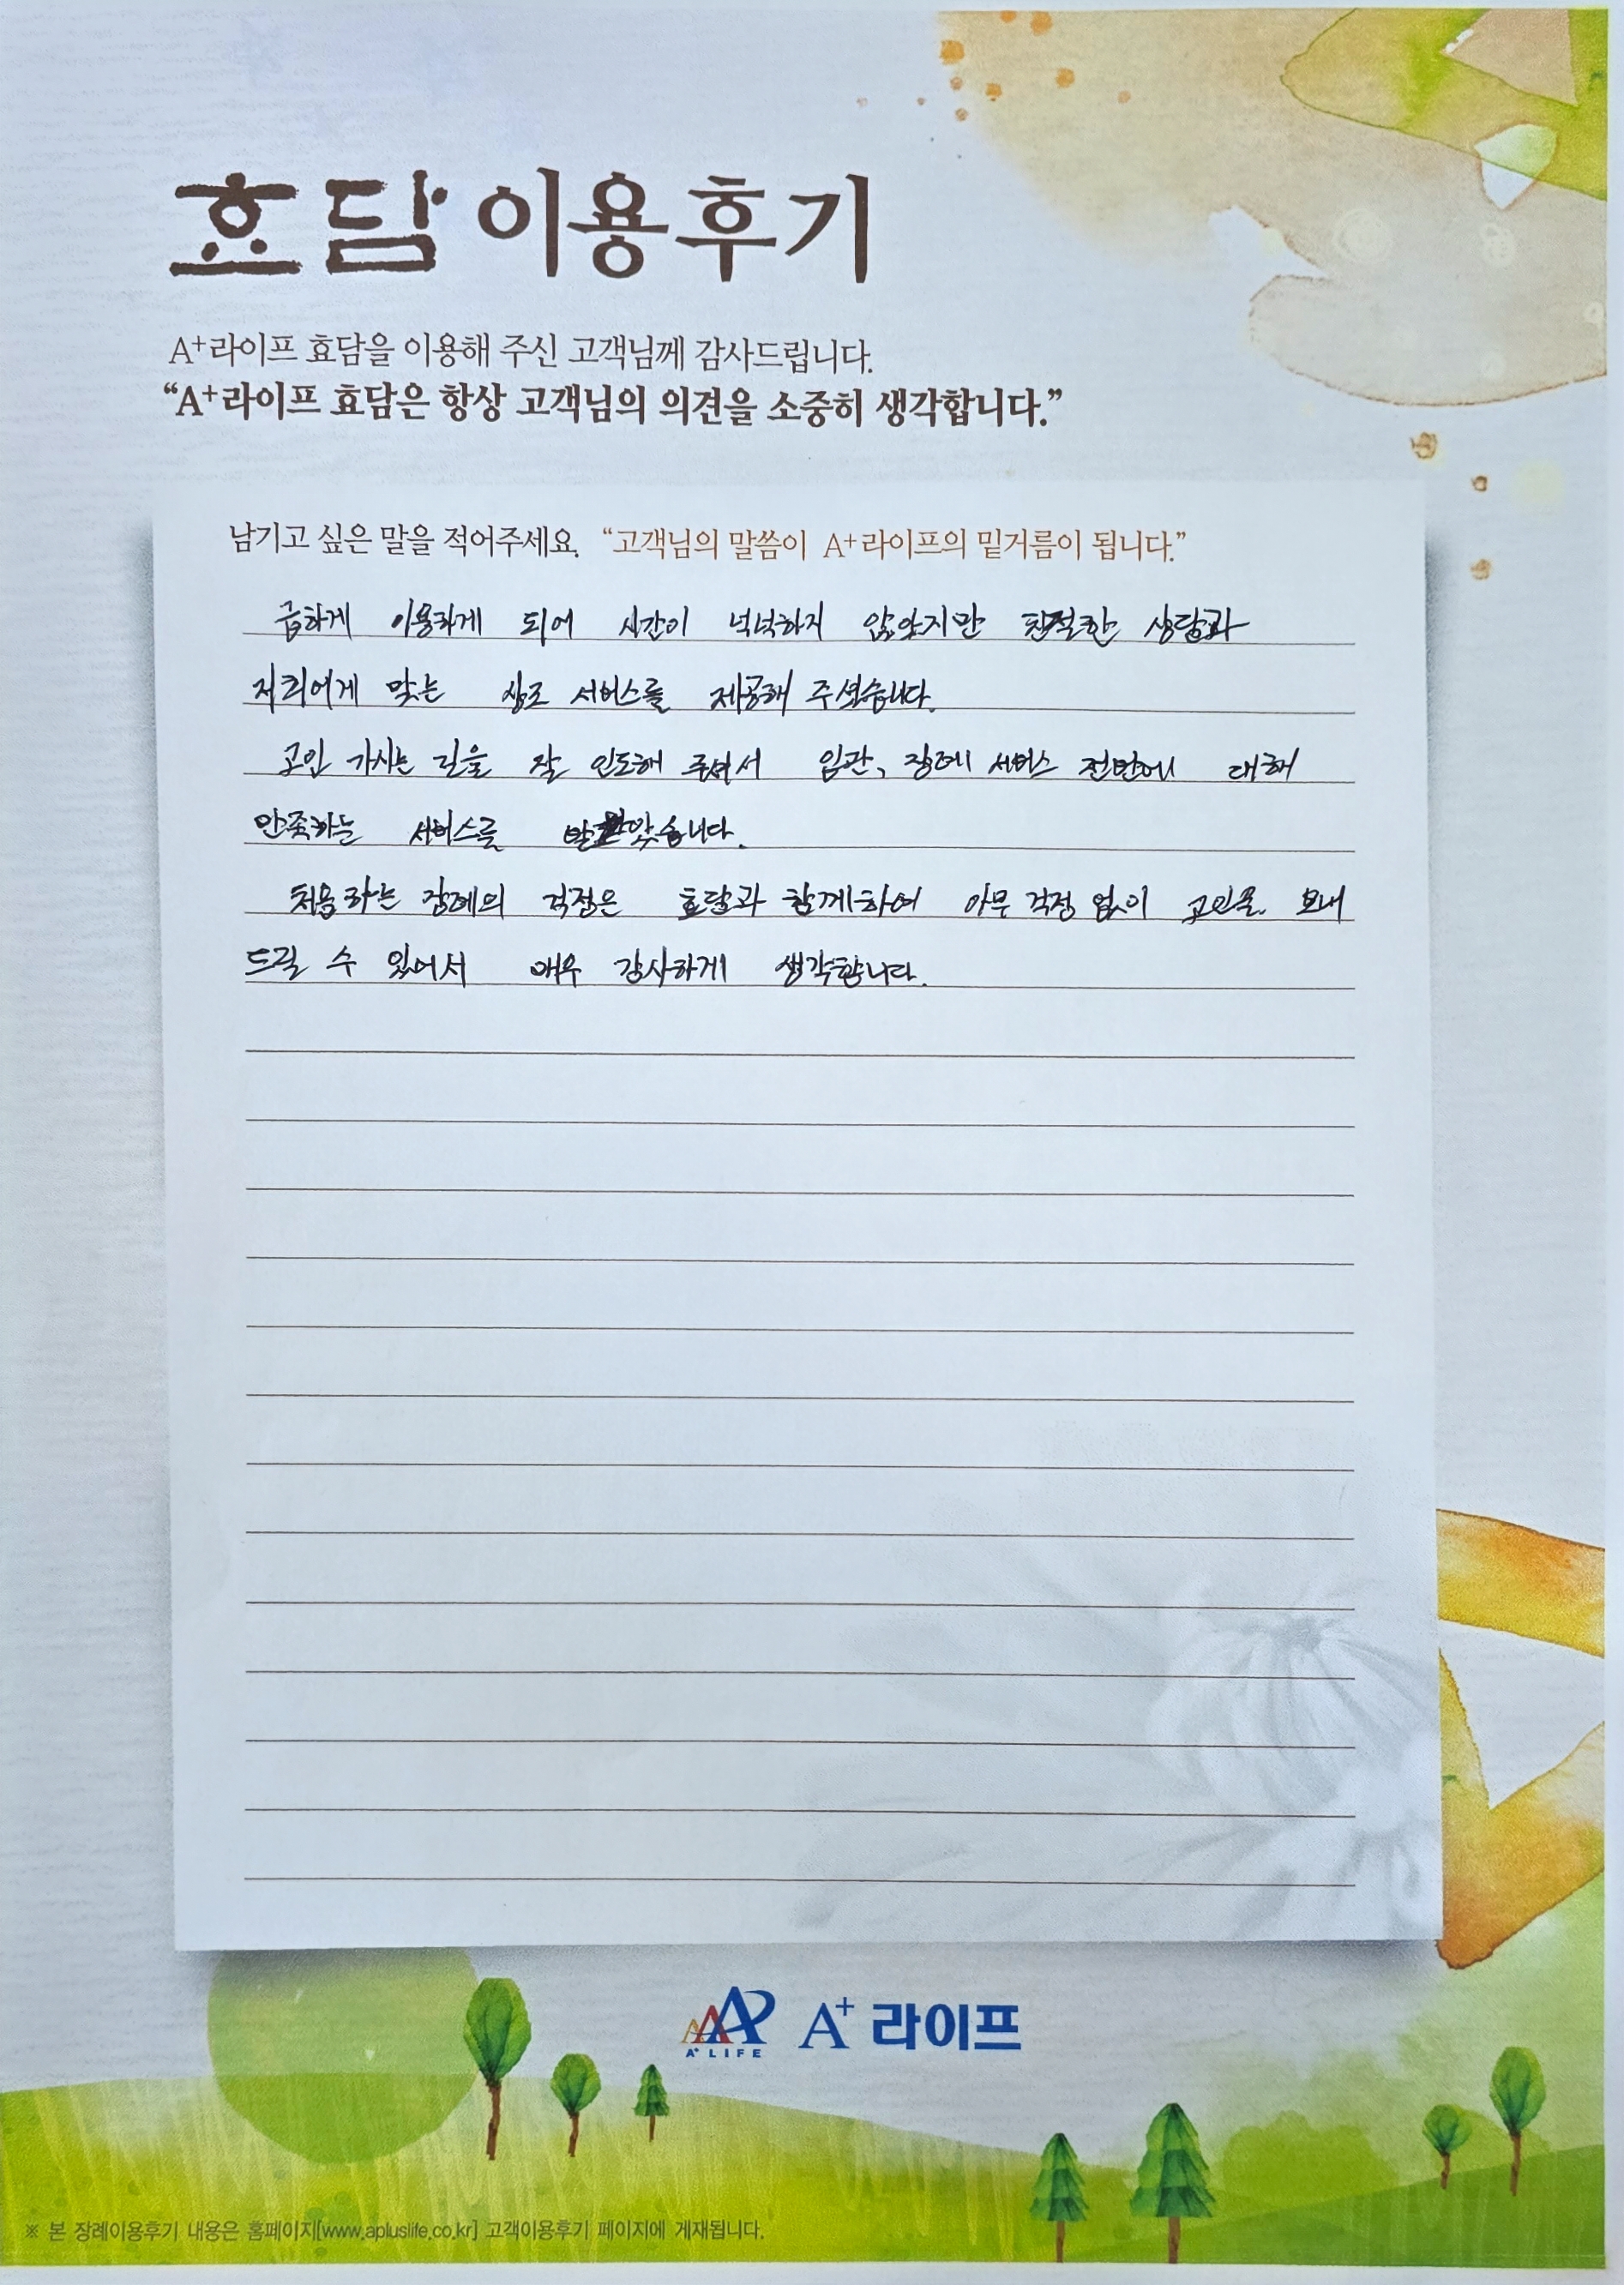 효담 이용후기
A+라이프 효담을 이용해 주신 고객님께 감사드립니다.
“A+라이프 효담은 항상 고객님의 의견을 소중히 생각합니다.”
남기고 싶은 말을 적어주세요. “고객님의 말씀이 A+라이프의 밑거름이 됩니다.”
급하게 이용하게 되어 시간이 넉넉하지 않았지만 친절한 상담과
저희에게 맞는 상조 서비스를 제공해 주셨습니다.
고인 가시는 길을 잘 인도해 주셔서 입관, 장례 서비스 전반에 대해
만족하는 서비스를 받았습니다.
처음 하는 장례의 걱정은 효담과 함께하여 아무 걱정 없이 고인을 보내
드릴 수 있어서 매우 감사하게 생각합니다.
A+ LIFE A+ 라이프
※ 본 장례이용후기 내용은 홈페이지[www.apluslife.co.kr] 고객이용후기 페이지에 게재됩니다.